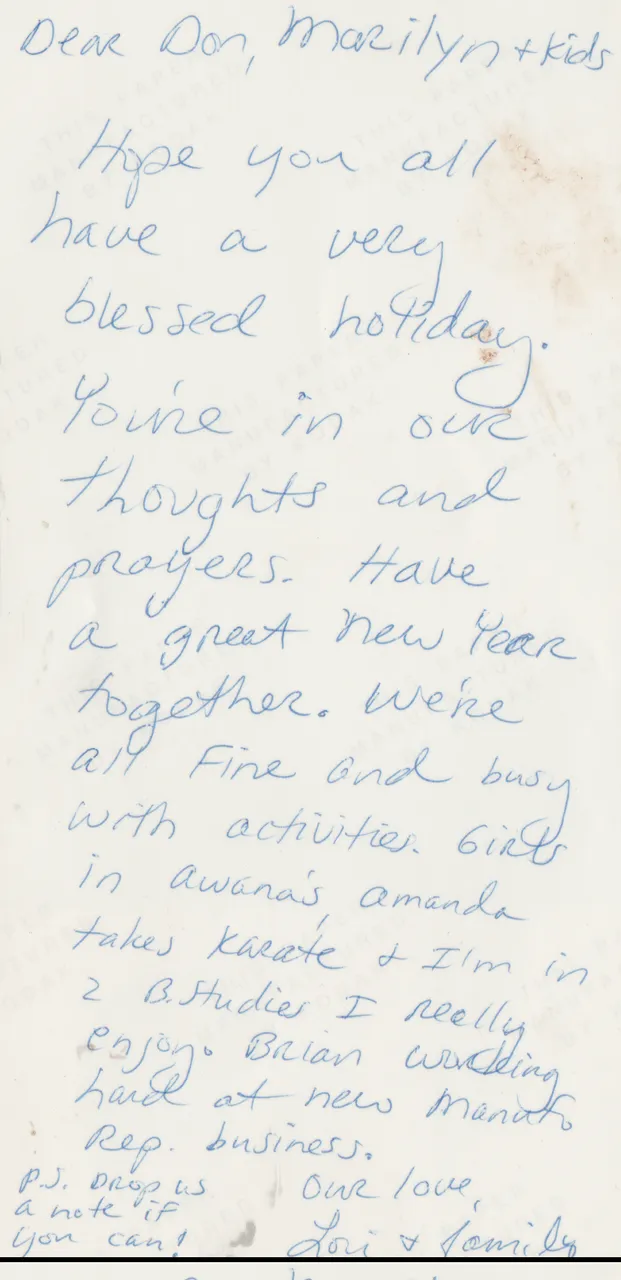 Dear Don, Marilyn + kids
Hope you all
have a very
blessed holiday.
You're in our
thoughts and
prayers. Have
a great New Year
together. We're
all fine and busy
with activities. Girls
in awana's, amanda
takes karate + I'm in
2 B.Studies I really
enjoy. Brian working
hard at new Manuf.
Rep. business.
Our love,
Lori & family
P.S. Drop us
a note if
you can!